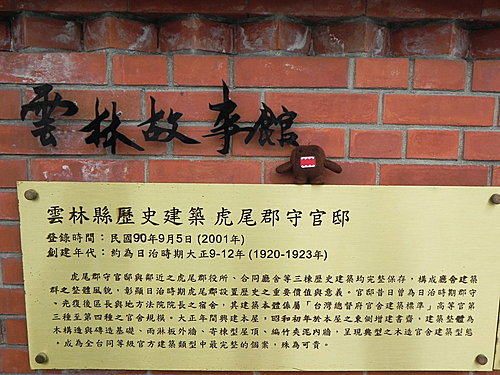 雲林故事館
雲林縣歷史建築 虎尾郡守官邸
登錄時間：民國90年9月5日 (2001年)
創建年代：約為日治時期大正9-12年 (1920-1923年)
虎尾郡守官邸與鄰近之虎尾郡役所、合同廳舍等三棟歷史建築均完整保存，構成廳舍建築
群之整體風貌，彰顯日治時期虎尾郡設置歷史之重要價值與意義。官邸昔日曾為日治時期郡守
、光復後區長與地方法院院長之宿舍，其建築本體係屬「台灣總督府官舍建築標準」高等官第
三種至第四種之官舍規模。大正年間興建本屋，昭和初年於本屋之東側增建書齋，建築整體為
木構造與磚造基礎、雨淋板外牆、寄棟型屋頂、編竹夾泥內牆，呈現典型之木造官舍建築型態
，成為全台同等級官方建築類型中最完整的個案，殊為可貴。